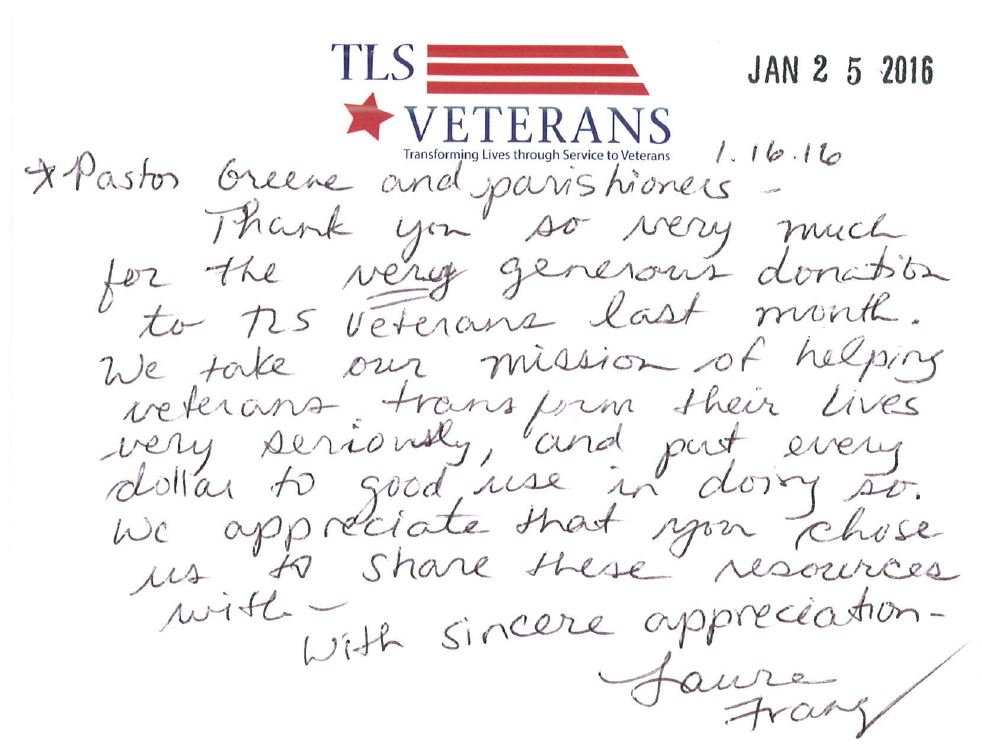 TLS
VETERANS
Transforming Lives through Service to Veterans
JAN 25 2016
1.16.16
*Pastor Greene and parishioners -
Thank you so very much
for the very generous donation
to TLS Veterans last month.
We take our mission of helping
veterans transform their lives
very seriously, and put every
dollar to good use in doing so.
We appreciate that you chose
us to share these resources
with -
With sincere appreciation -
Laura
Franz